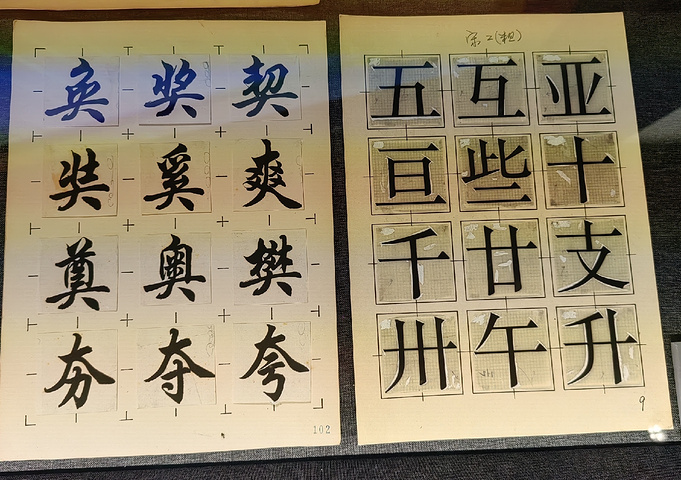 奂 奖 契
奘 奚 爽
奠 奥 樊
夯 夺 夸
102
五 互 亚
亘 些 十
千 廿 支
卅 午 升
9